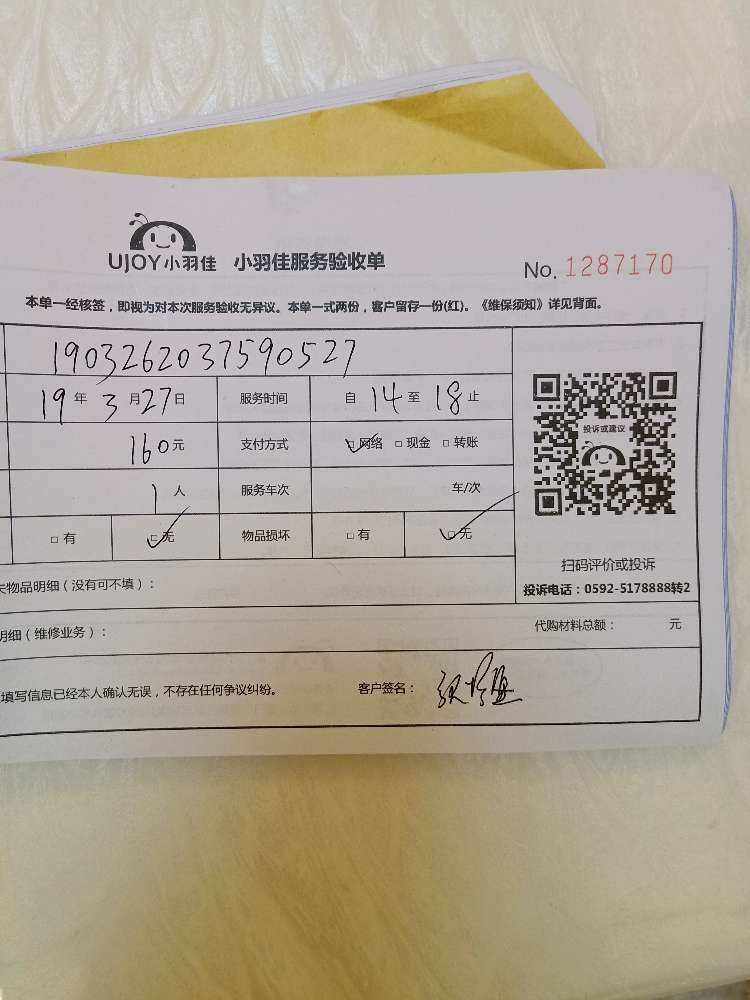 UJOY小羽佳 小羽佳服务验收单
No. 1287170
本单一经核签，即视为对本次服务验收无异议。本单一式两份，客户留存一份(红)。《维保须知》详见背面。
1903262037590527
19年3月27日 服务时间 自14至18止
160元 支付方式 ☑网络 □现金 □转账
1人 服务车次 车/次
□有 ☑无 物品损坏 □有 ☑无
投诉或建议
扫码评价或投诉
投诉电话：0592-5178888转2
物品明细（没有可不填）：
明细（维修业务）： 代购材料总额： 元
填写信息已经本人确认无误，不存在任何争议纠纷。 客户签名：